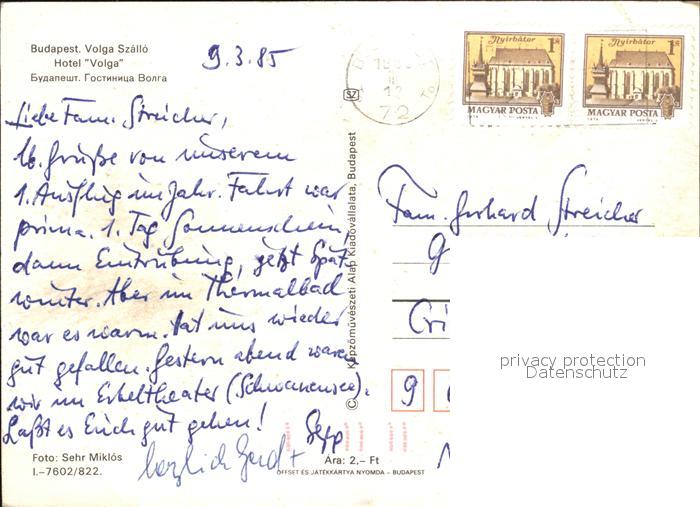 Budapest. Volga Szálló
Hotel "Volga"
Будапешт. Гостиница Волга
9.3.85
Liebe Fam. Streicher,
lb. Grüße von unserem
1. Ausflug im Jahr. Fahrt war
prima. 1. Tag Sonnenschein,
dann Eintrübung, jetzt Spät-
winter. Aber im Thermalbad
war es warm. Hat uns wieder
gut gefallen. Gestern abend waren
wir im Erkeltheater (Schwanensee).
Laßt es Euch gut gehen!
Sepp
herzlich Gerd
Foto: Sehr Miklós
I.-7602/822.
Ára: 2,- Ft
OFFSET ÉS JÁTÉKKÁRTYA NYOMDA - BUDAPEST
© Képzőművészeti Alap Kiadóvállalata, Budapest
72
Nyírbátor 1 Ft
MAGYAR POSTA
Nyírbátor 1 Ft
MAGYAR POSTA
Fam. Gerhard Streicher
G
Cri
9
privacy protection
Datenschutz